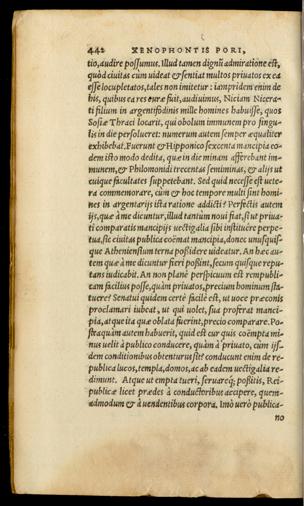 442 XENOPHONTIS PORI,
tio, audire possumus. Illud tamen dignũ admiratione est,
quòd ciuitas cum uideat & sentiat multos priuatos ex ea
esse locupletatos, tales non imitetur: iampridem enim de
his, quibus ea res curæ fuit, audiuimus, Niciam Nicera-
ti filium in argentifodinis mille homines habuisse, quos
Sosiæ Thraci locarit, qui obolum immunem pro singu-
lis in die persolueret: numerum autem semper æqualiter
exhibebat. Fuerunt & Hipponico sexcenta mancipia eo-
dem isto modo dedita, quæ in die minam afferebant im-
munem, & Philomonidi trecentas seminimas, & alijs ut
cuique facultates suppetebant. Sed quid necesse est uete-
ra commemorare, cum & hoc tempore multi sint homi-
nes in argentarijs ista ratione addicti? Perfectis autem
ijs, quæ à me dicuntur, illud tantùm noui fiat, si ut priua-
ti comparatis mancipijs uectigalia sibi instituêre perpe-
tua, sic ciuitas publica coëmat mancipia, donec unusquis-
que Atheniensium terna possidere uideatur. An hæc au-
tem quæ à me dicuntur fieri possint, secum quisque repu-
tans iudicabit. An non planè perspicuum est rempubli-
cam facilius posse, quàm priuatos, precium hominum sta-
tuere? Senatui quidem certè facilè est, ut uoce præconis
proclamari iubeat, ut qui uolet, sua proferat manci-
pia, atque ita quæ oblata fuerint, precio comparare. Po-
stea quàm autem habuerit, quid est cur quis coëmpta mi-
nus uelit à publico conducere, quàm à priuato, cum ijs-
dem conditionibus obtenturus sit? conducunt enim de re-
publica lucos, templa, domos, ac ab eadem uectigalia re-
dimunt. Atque ut empta tueri, seruareq; possitis, Rei-
publicæ licet prædes à conductoribus accipere, quem-
admodum & à uendentibus corpora. Imò uerò publica-
no